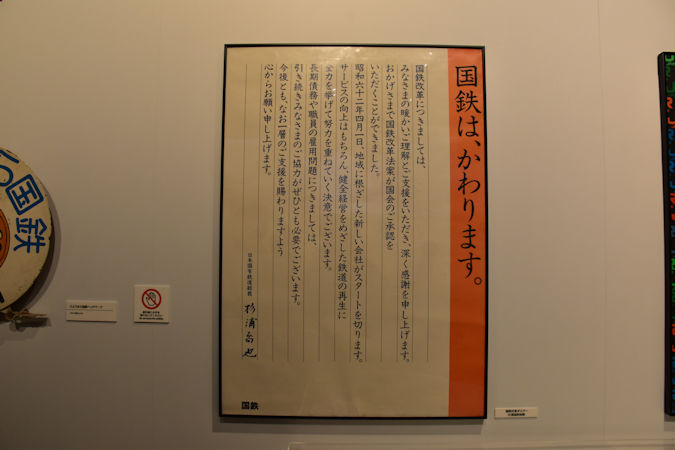 国鉄は、かわります。
国鉄改革につきましては、
みなさまの暖かいご理解とご支援をいただき、深く感謝を申し上げます。
おかげさまで国鉄改革法案が国会のご承認を
いただくことができました。
昭和六十二年四月一日、地域に根ざした新しい会社がスタートを切ります。
サービスの向上はもちろん、健全経営をめざした鉄道の再生に
全力を挙げて努力を重ねていく決意でございます。
長期債務や職員の雇用問題につきましては、
引き続きみなさまのご協力がぜひとも必要でございます。
今後とも、なお一層のご支援を賜わりますよう
心からお願い申し上げます。
日本国有鉄道総裁
杉浦喬也
国鉄
国鉄